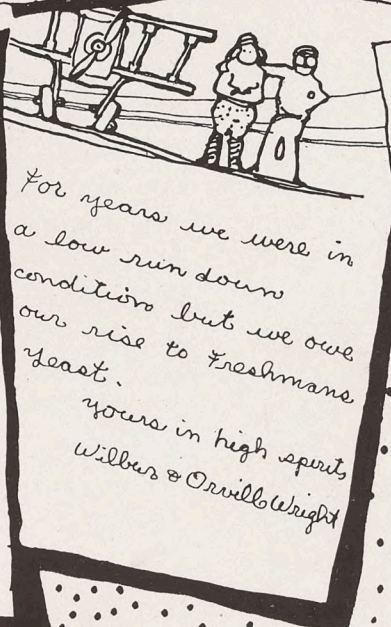 For years we were in
a low run down
condition but we owe
our rise to Freshmans
Yeast.
yours in high spirits
Wilbur & Orville Wright